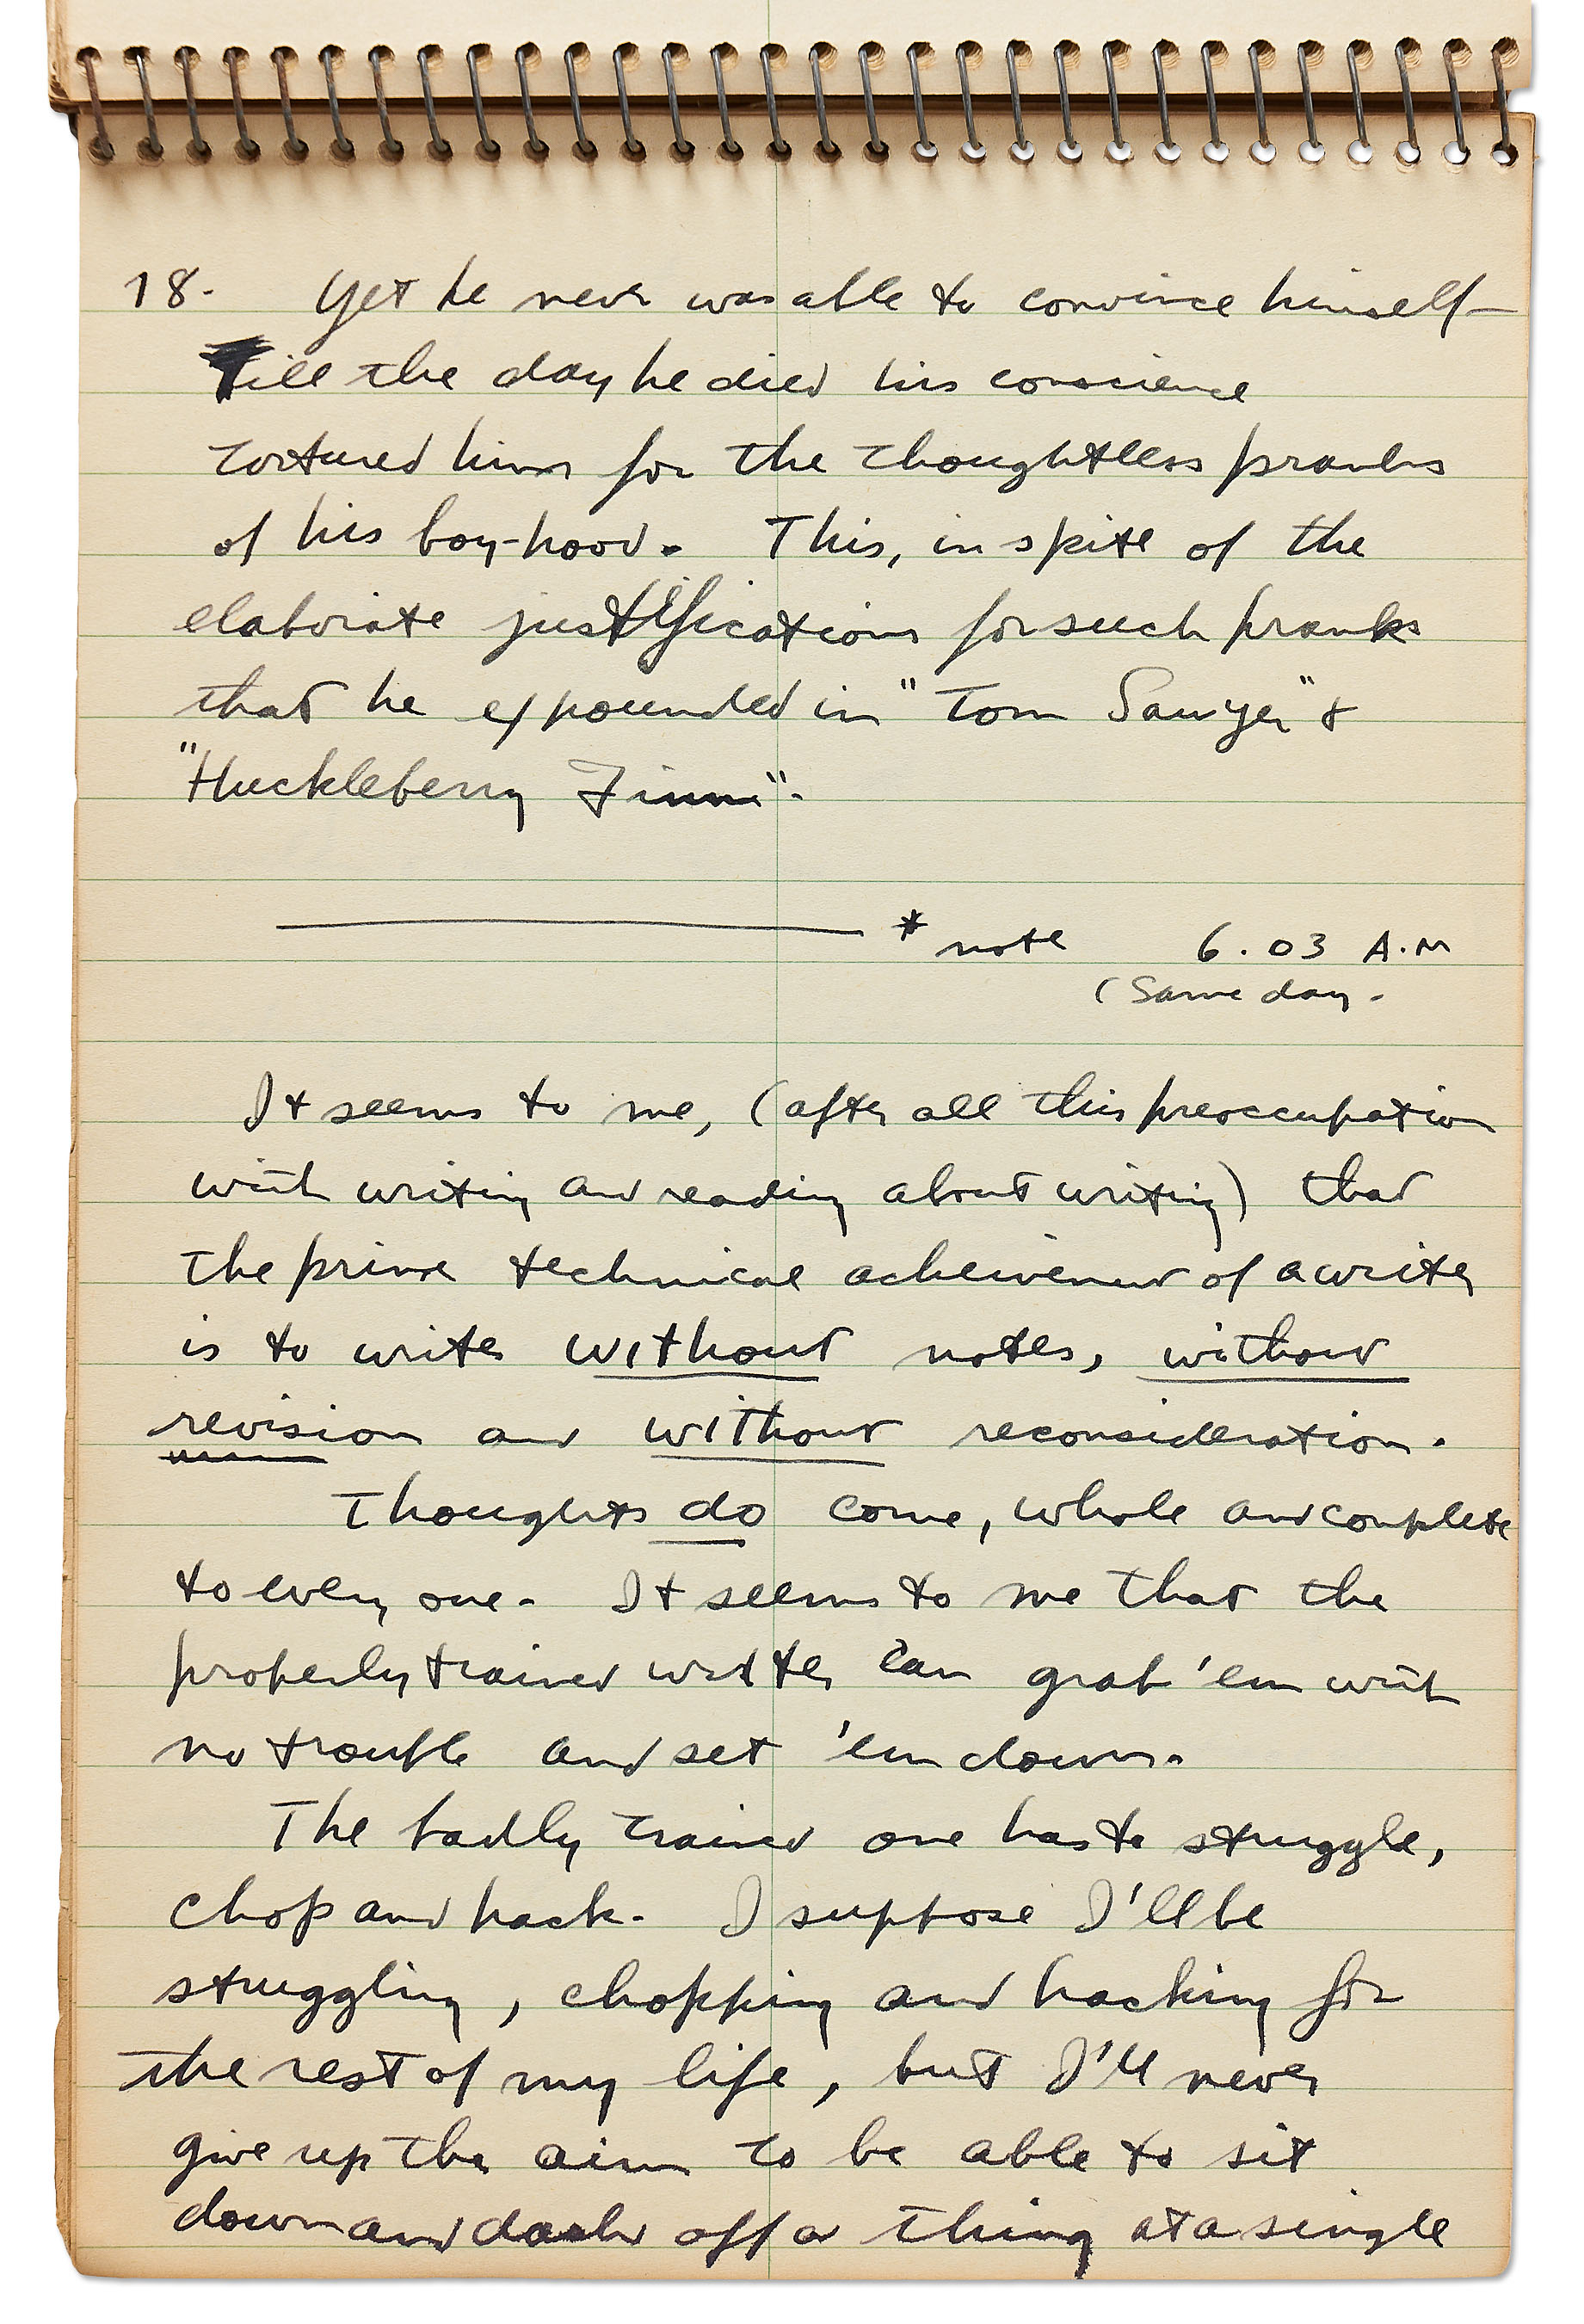 18. Yet he never was able to convince himself–
Till the day he died his conscience
tortured him for the thoughtless pranks
of his boy-hood. This, in spite of the
elaborate justifications for such pranks
that he expounded in "Tom Sawyer" &
"Huckleberry Finn".
* note 6.03 A.M
(Same day.
It seems to me, (after all this preoccupation
with writing and reading about writing) that
the prime technical acheivement of a writer
is to write without notes, without
revision and without reconsideration.
Thoughts do come, whole and complete
to every one. It seems to me that the
properly trained writer can grab 'em with
no trouble and set 'em down.
The badly trained one has to struggle,
chop and hack. I suppose I'll be
struggling, chopping and hacking for
the rest of my life, but I'll never
give up the aim to be able to sit
down and dash off a thing at a single